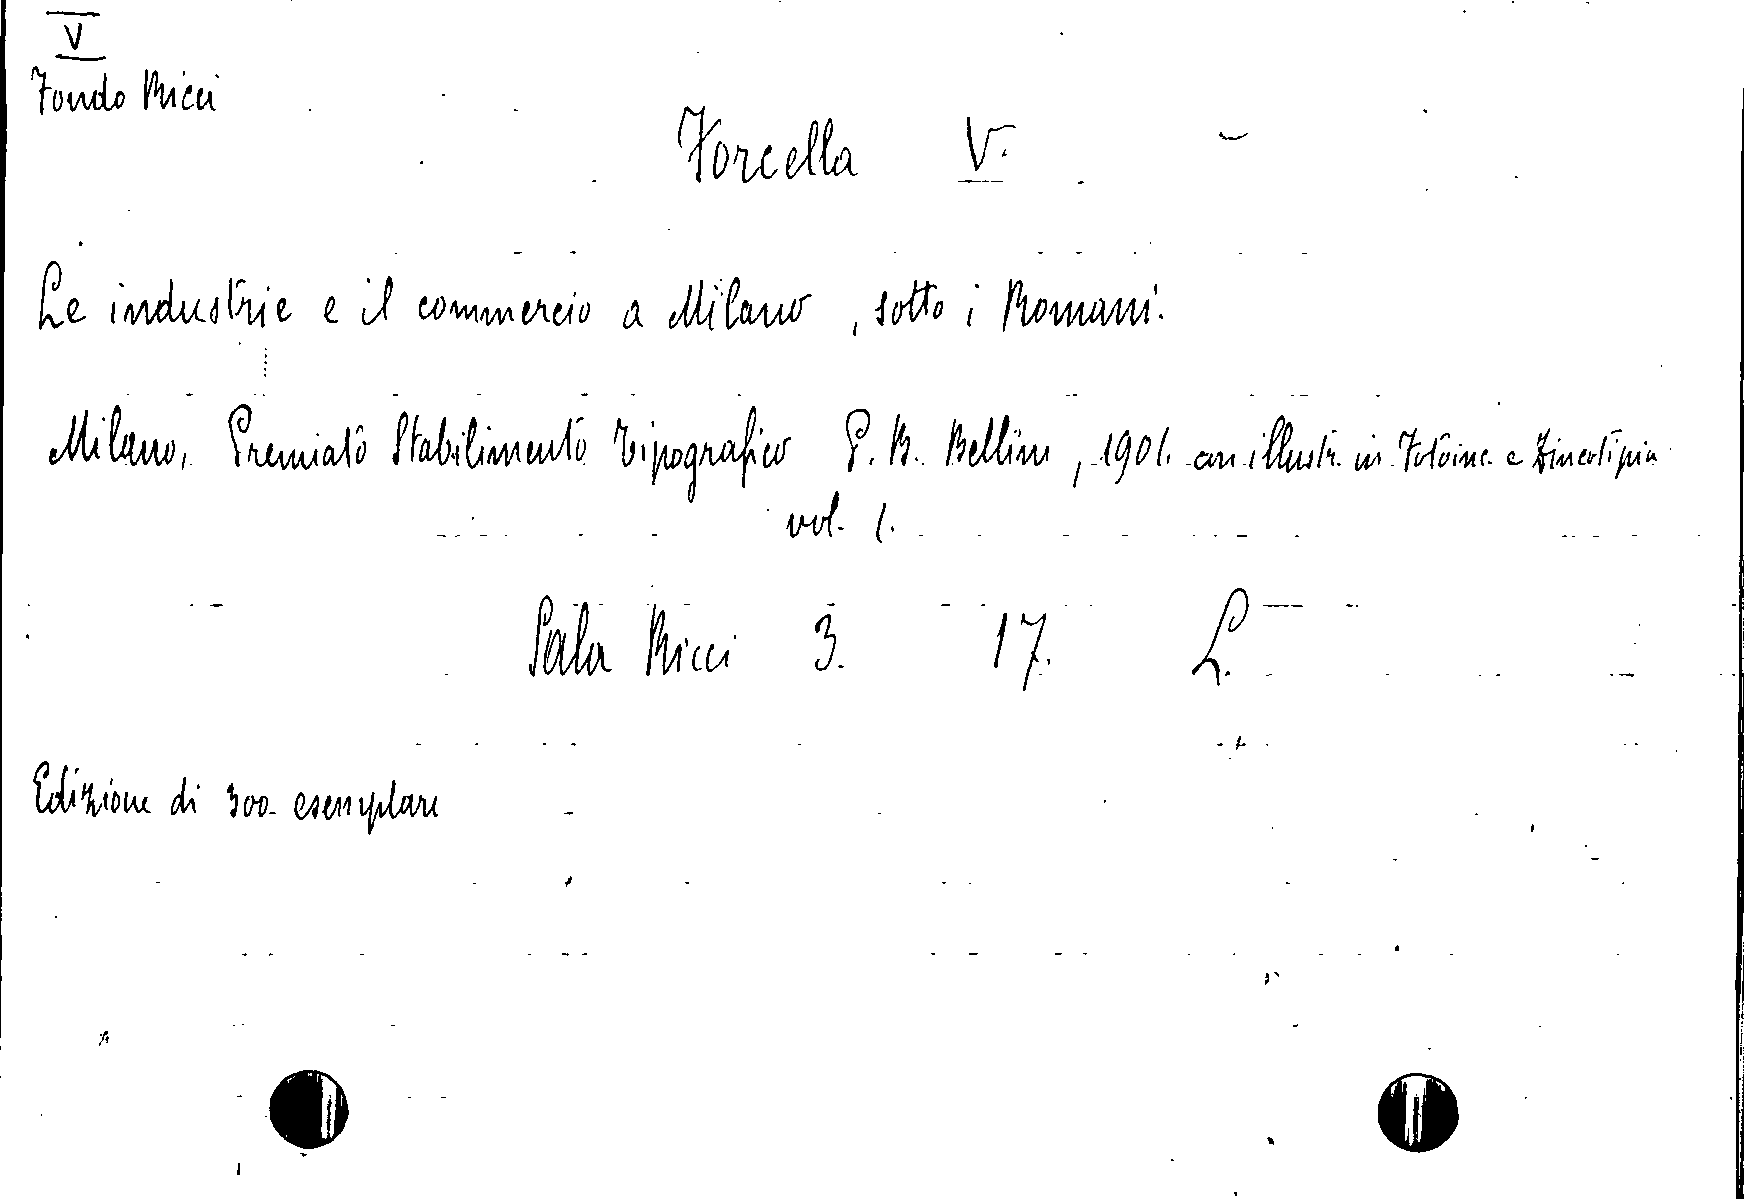 V
Fondo Ricci
Forcella V.
Le industrie e il commercio a Milano, sotto i Romani.
Milano, Premiato Stabilimento Tipografico P. B. Bellini, 1901. con illustr. in Fotoinc. e Zincotipia
vol. 1.
Sala Ricci 3. 17. L.
Edizione di 300 esemplari